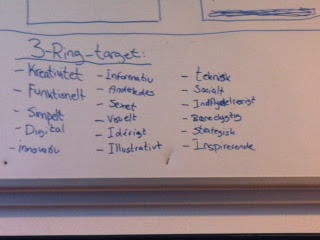 3-Ring-target:
- Kreativitet
- Funktionelt
- Simpelt
- Digital
- innovativ
- Informativ
- Anderledes
- Sexet
- Visuelt
- Idérigt
- Illustrativt
- teknisk
- Socialt
- Indflydelsesrigt
- Bæredygtig
- Strategisk
- Inspirerende